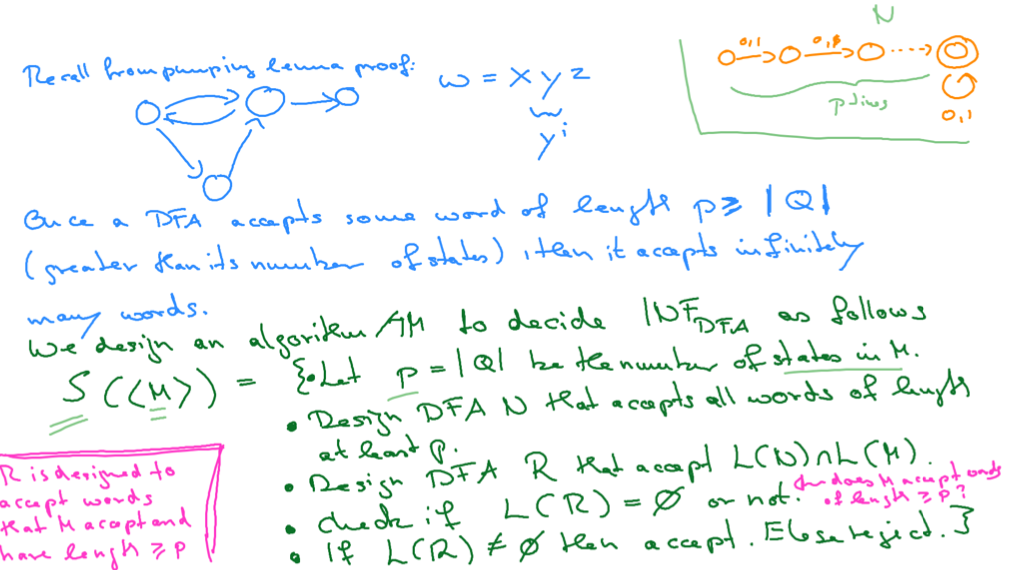 N
0,1 0,1
p times
0,1
Recall from pumping lemma proof:
w = x y z
y^i
Once a DFA accepts some word of length p ≥ |Q|
(greater than its number of states), then it accepts infinitely
many words.
We design an algorithm /TM to decide INF_DFA as follows
S(<M>) = {• Let p = |Q| be the number of states in M.
• Design DFA N that accepts all words of length
at least p.
• Design DFA R that accept L(N)∩L(M).
• check if L(R) = ∅ or not.
does M accept words
of length ≥ p?
• If L(R) ≠ ∅ then accept. Else reject.}
R is designed to
accept words
that M accept and
have length ≥ p